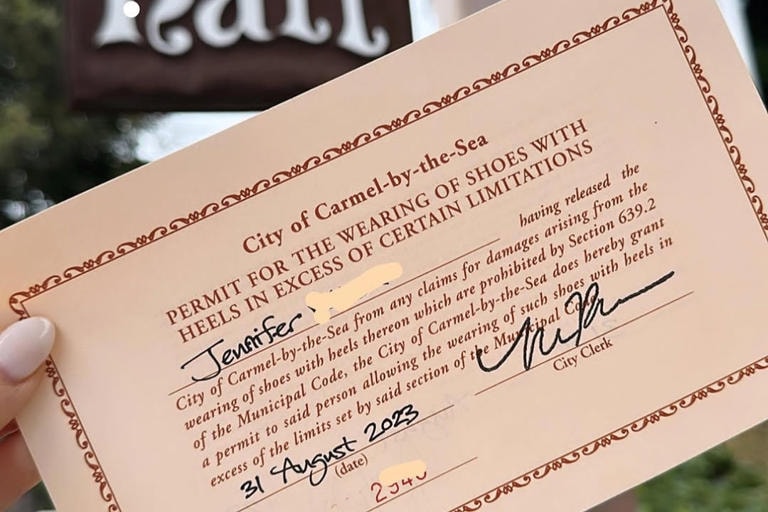 Hall
City of Carmel-by-the-Sea
PERMIT FOR THE WEARING OF SHOES WITH
HEELS IN EXCESS OF CERTAIN LIMITATIONS
Jennifer having released the
City of Carmel-by-the-Sea from any claims for damages arising from the
wearing of shoes with heels thereon which are prohibited by Section 639.2
of the Municipal Code, the City of Carmel-by-the-Sea does hereby grant
a permit to said person allowing the wearing of such shoes with heels in
excess of the limits set by said section of the Municipal
City Clerk
31 August 2023
(date)